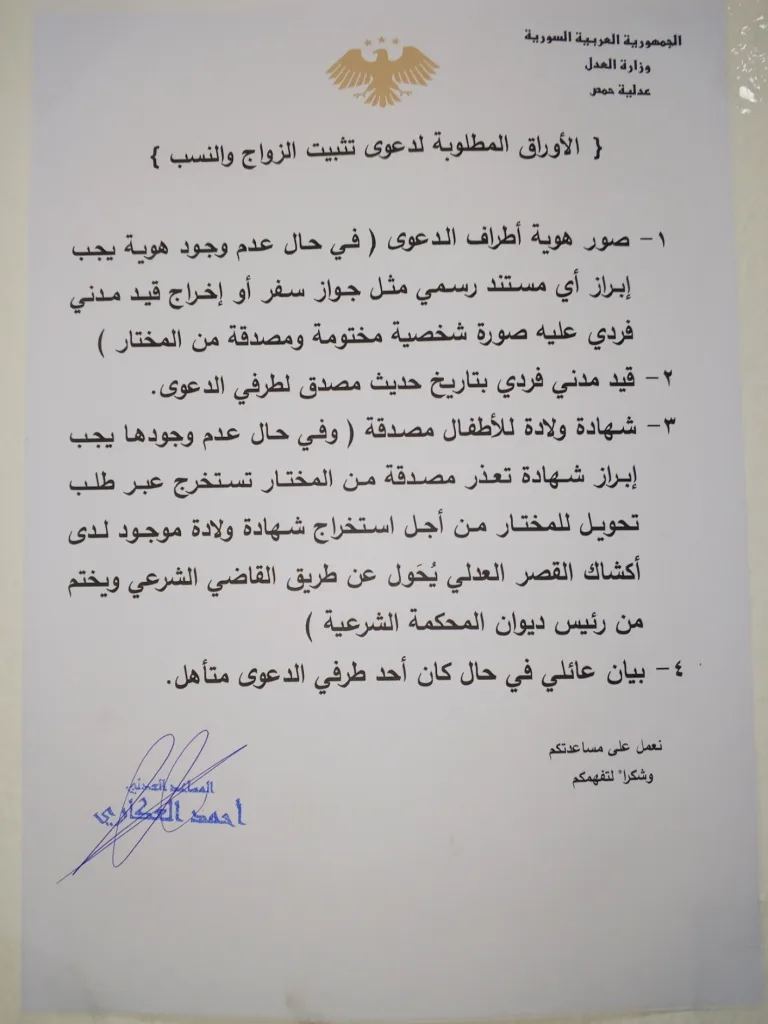 الجمهورية العربية السورية
وزارة العدل
عدلية حمص
{ الأوراق المطلوبة لدعوى تثبيت الزواج والنسب }
١- صور هوية أطراف الدعوى ( في حال عدم وجود هوية يجب
إبراز أي مستند رسمي مثل جواز سفر أو إخراج قيد مدني
فردي عليه صورة شخصية مختومة ومصدقة من المختار )
٢- قيد مدني فردي بتاريخ حديث مصدق لطرفي الدعوى.
٣- شهادة ولادة للأطفال مصدقة ( وفي حال عدم وجودها يجب
إبراز شهادة تعذر مصدقة من المختار تستخرج عبر طلب
تحويل للمختار من أجل استخراج شهادة ولادة موجود لدى
أكشاك القصر العدلي يُحَول عن طريق القاضي الشرعي ويختم
من رئيس ديوان المحكمة الشرعية )
٤- بيان عائلي في حال كان أحد طرفي الدعوى متأهل.
نعمل على مساعدتكم
وشكراً لتفهمكم
المساعد العدلي
احمد العكاري